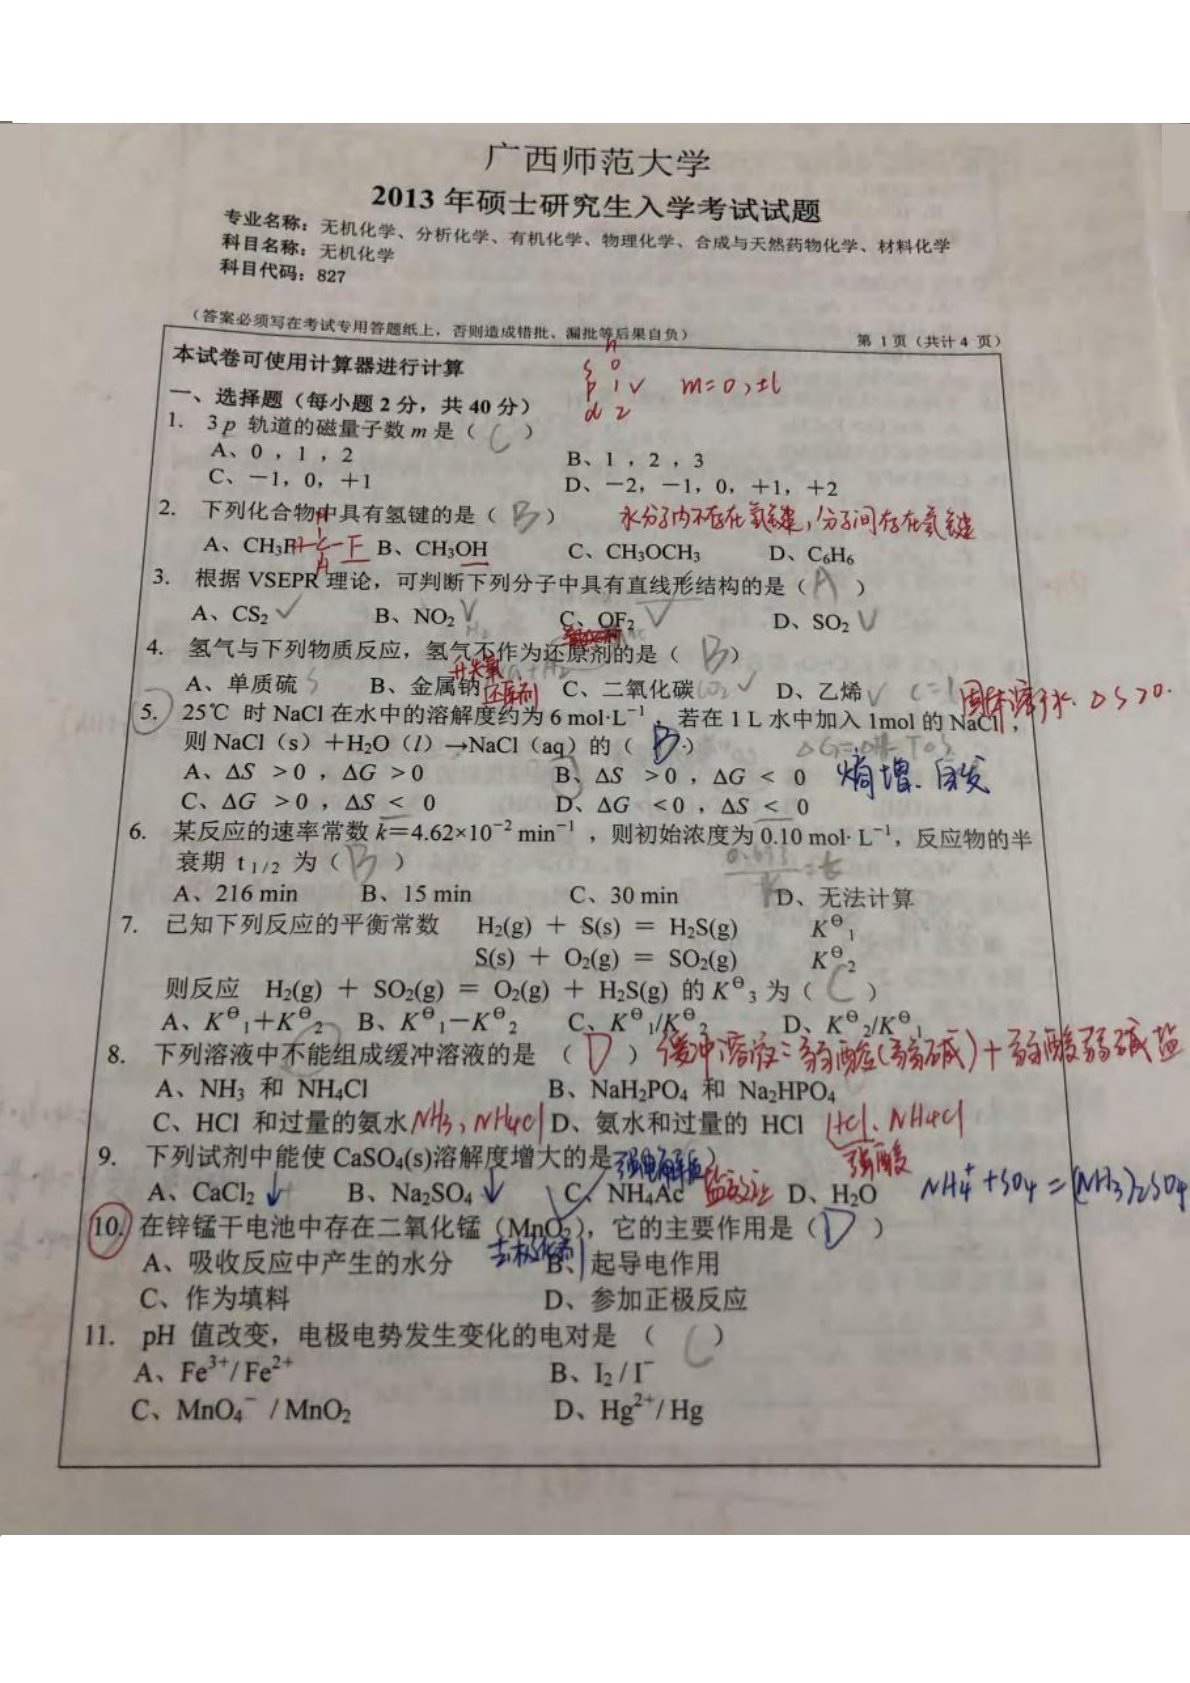 广西师范大学
2013 年硕士研究生入学考试试题
专业名称：无机化学、分析化学、有机化学、物理化学、合成与天然药物化学、材料化学
科目名称：无机化学
科目代码：827
（答案必须写在考试专用答题纸上，否则造成错批、漏批等后果自负） 第 1 页（共计 4 页）
本试卷可使用计算器进行计算
n
s 0
p 1 √ m=0,±1
d 2
一、选择题（每小题 2 分，共 40 分）
1. 3p 轨道的磁量子数 m 是（ C ）
A、0 ，1 ，2 B、1 ，2 ，3
C、－1，0，＋1 D、－2，－1，0，＋1，＋2
2. 下列化合物中具有氢键的是（ B ） 水分子内不存在氢键，分子间存在氢键
A、CH3F B、CH3OH C、CH3OCH3 D、C6H6
3. 根据 VSEPR 理论，可判断下列分子中具有直线形结构的是（ A ）
A、CS2 √ B、NO2 V C、OF2 V D、SO2 V
4. 氢气与下列物质反应，氢气不作为还原剂的是（ B ）
A、单质硫 S B、金属钠 还原剂 C、二氧化碳 CO2 √ D、乙烯 √
固体溶于水、△S>0.
5. 25℃ 时 NaCl 在水中的溶解度约为 6 mol·L⁻¹ ，若在 1 L 水中加入 1mol 的 NaCl ，
则 NaCl（s）＋H2O（l）→NaCl（aq）的（ B ）
A、ΔS ＞0 ，ΔG ＞0 B、ΔS ＞0 ，ΔG ＜ 0 熵增、自发
C、ΔG ＞0 ，ΔS ＜ 0 D、ΔG ＜0 ，ΔS ＜ 0
6. 某反应的速率常数 k＝4.62×10⁻² min⁻¹ ，则初始浓度为 0.10 mol· L⁻¹，反应物的半
衰期 t1/2 为（ B ） 0.693/k=t
A、216 min B、15 min C、30 min D、无法计算
7. 已知下列反应的平衡常数 H2(g) ＋ S(s) ＝ H2S(g) K⊖1
S(s) ＋ O2(g) ＝ SO2(g) K⊖2
则反应 H2(g) ＋ SO2(g) ＝ O2(g) ＋ H2S(g) 的 K⊖3 为（ C ）
A、K⊖1＋K⊖2 B、K⊖1－K⊖2 C、K⊖1/K⊖2 D、K⊖2/K⊖1
8. 下列溶液中不能组成缓冲溶液的是 （ D ） 缓冲溶液：弱酸(弱碱)＋弱酸弱碱盐
A、NH3 和 NH4Cl B、NaH2PO4 和 Na2HPO4
C、HCl 和过量的氨水 NH3，NH4Cl D、氨水和过量的 HCl HCl、NH4Cl
强酸
9. 下列试剂中能使 CaSO4(s)溶解度增大的是 强电解质 ）
A、CaCl2 ↓ B、Na2SO4 ↓ C、NH4Ac 盐效应 D、H2O NH4⁺+SO4=(NH3)2SO4
10. 在锌锰干电池中存在二氧化锰（MnO2），它的主要作用是（ D ）
去极化剂
A、吸收反应中产生的水分 B、起导电作用
C、作为填料 D、参加正极反应
11. pH 值改变，电极电势发生变化的电对是 （ C ）
A、Fe³⁺/ Fe²⁺ B、I2 / I⁻
C、MnO4⁻ / MnO2 D、Hg²⁺/ Hg